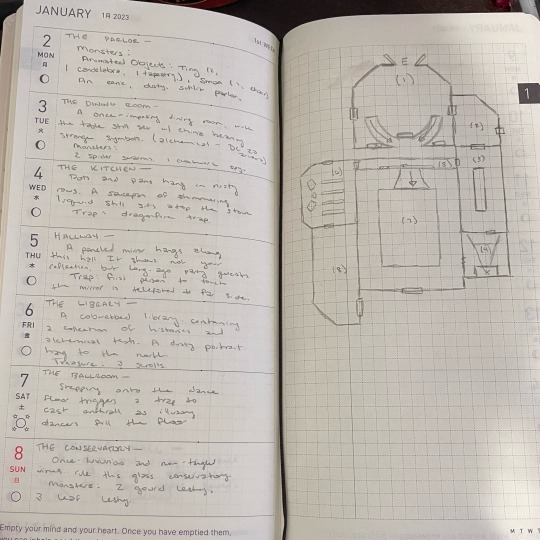 JANUARY 1月 2023
1st WEEK
2 MON 月
THE PARLOR —
Monsters:
Animated Objects: Tiny (1,
1 candelabra, 1 tapestry), Small (1, chair)
An eerie, dusty, parlor.
3 TUE 火
THE DINING ROOM —
A once-imposing dining room, with
the table still set w/ china bearing
strange symbols. (alchemical - DC 20
Monsters:
2 spider swarms, 1
4 WED 水
THE KITCHEN —
Pots and pans hang in rusty
rows. A saucepan of shimmering
liquid still sits atop the stove
Trap: dragonfire trap
5 THU 木
HALLWAY —
A paneled mirror hangs along
this hall. It shows not your
reflection, but long-ago party guests
Trap: first person to touch
the mirror is teleported to far side.
6 FRI 金
THE LIBRARY —
A cobwebbed library, containing
a collection of histories and
alchemical texts. A dusty portrait
hangs to the north
Treasure: 3 scrolls
7 SAT 土
THE BALLROOM —
Stepping onto the dance
floor triggers a trap to
cast enthrall as illusory
dancers fill the floor
8 SUN 日
THE CONSERVATORY —
Once-luxurious and now-tangled
vines rule this glass conservatory.
Monsters: 2 gourd leshy,
3 leaf leshy
Empty your mind and your heart. Once you have emptied them,
E
(1)
(2)
(3)
(4)
(5)
(6)
(7)
(8)
1
M T W T